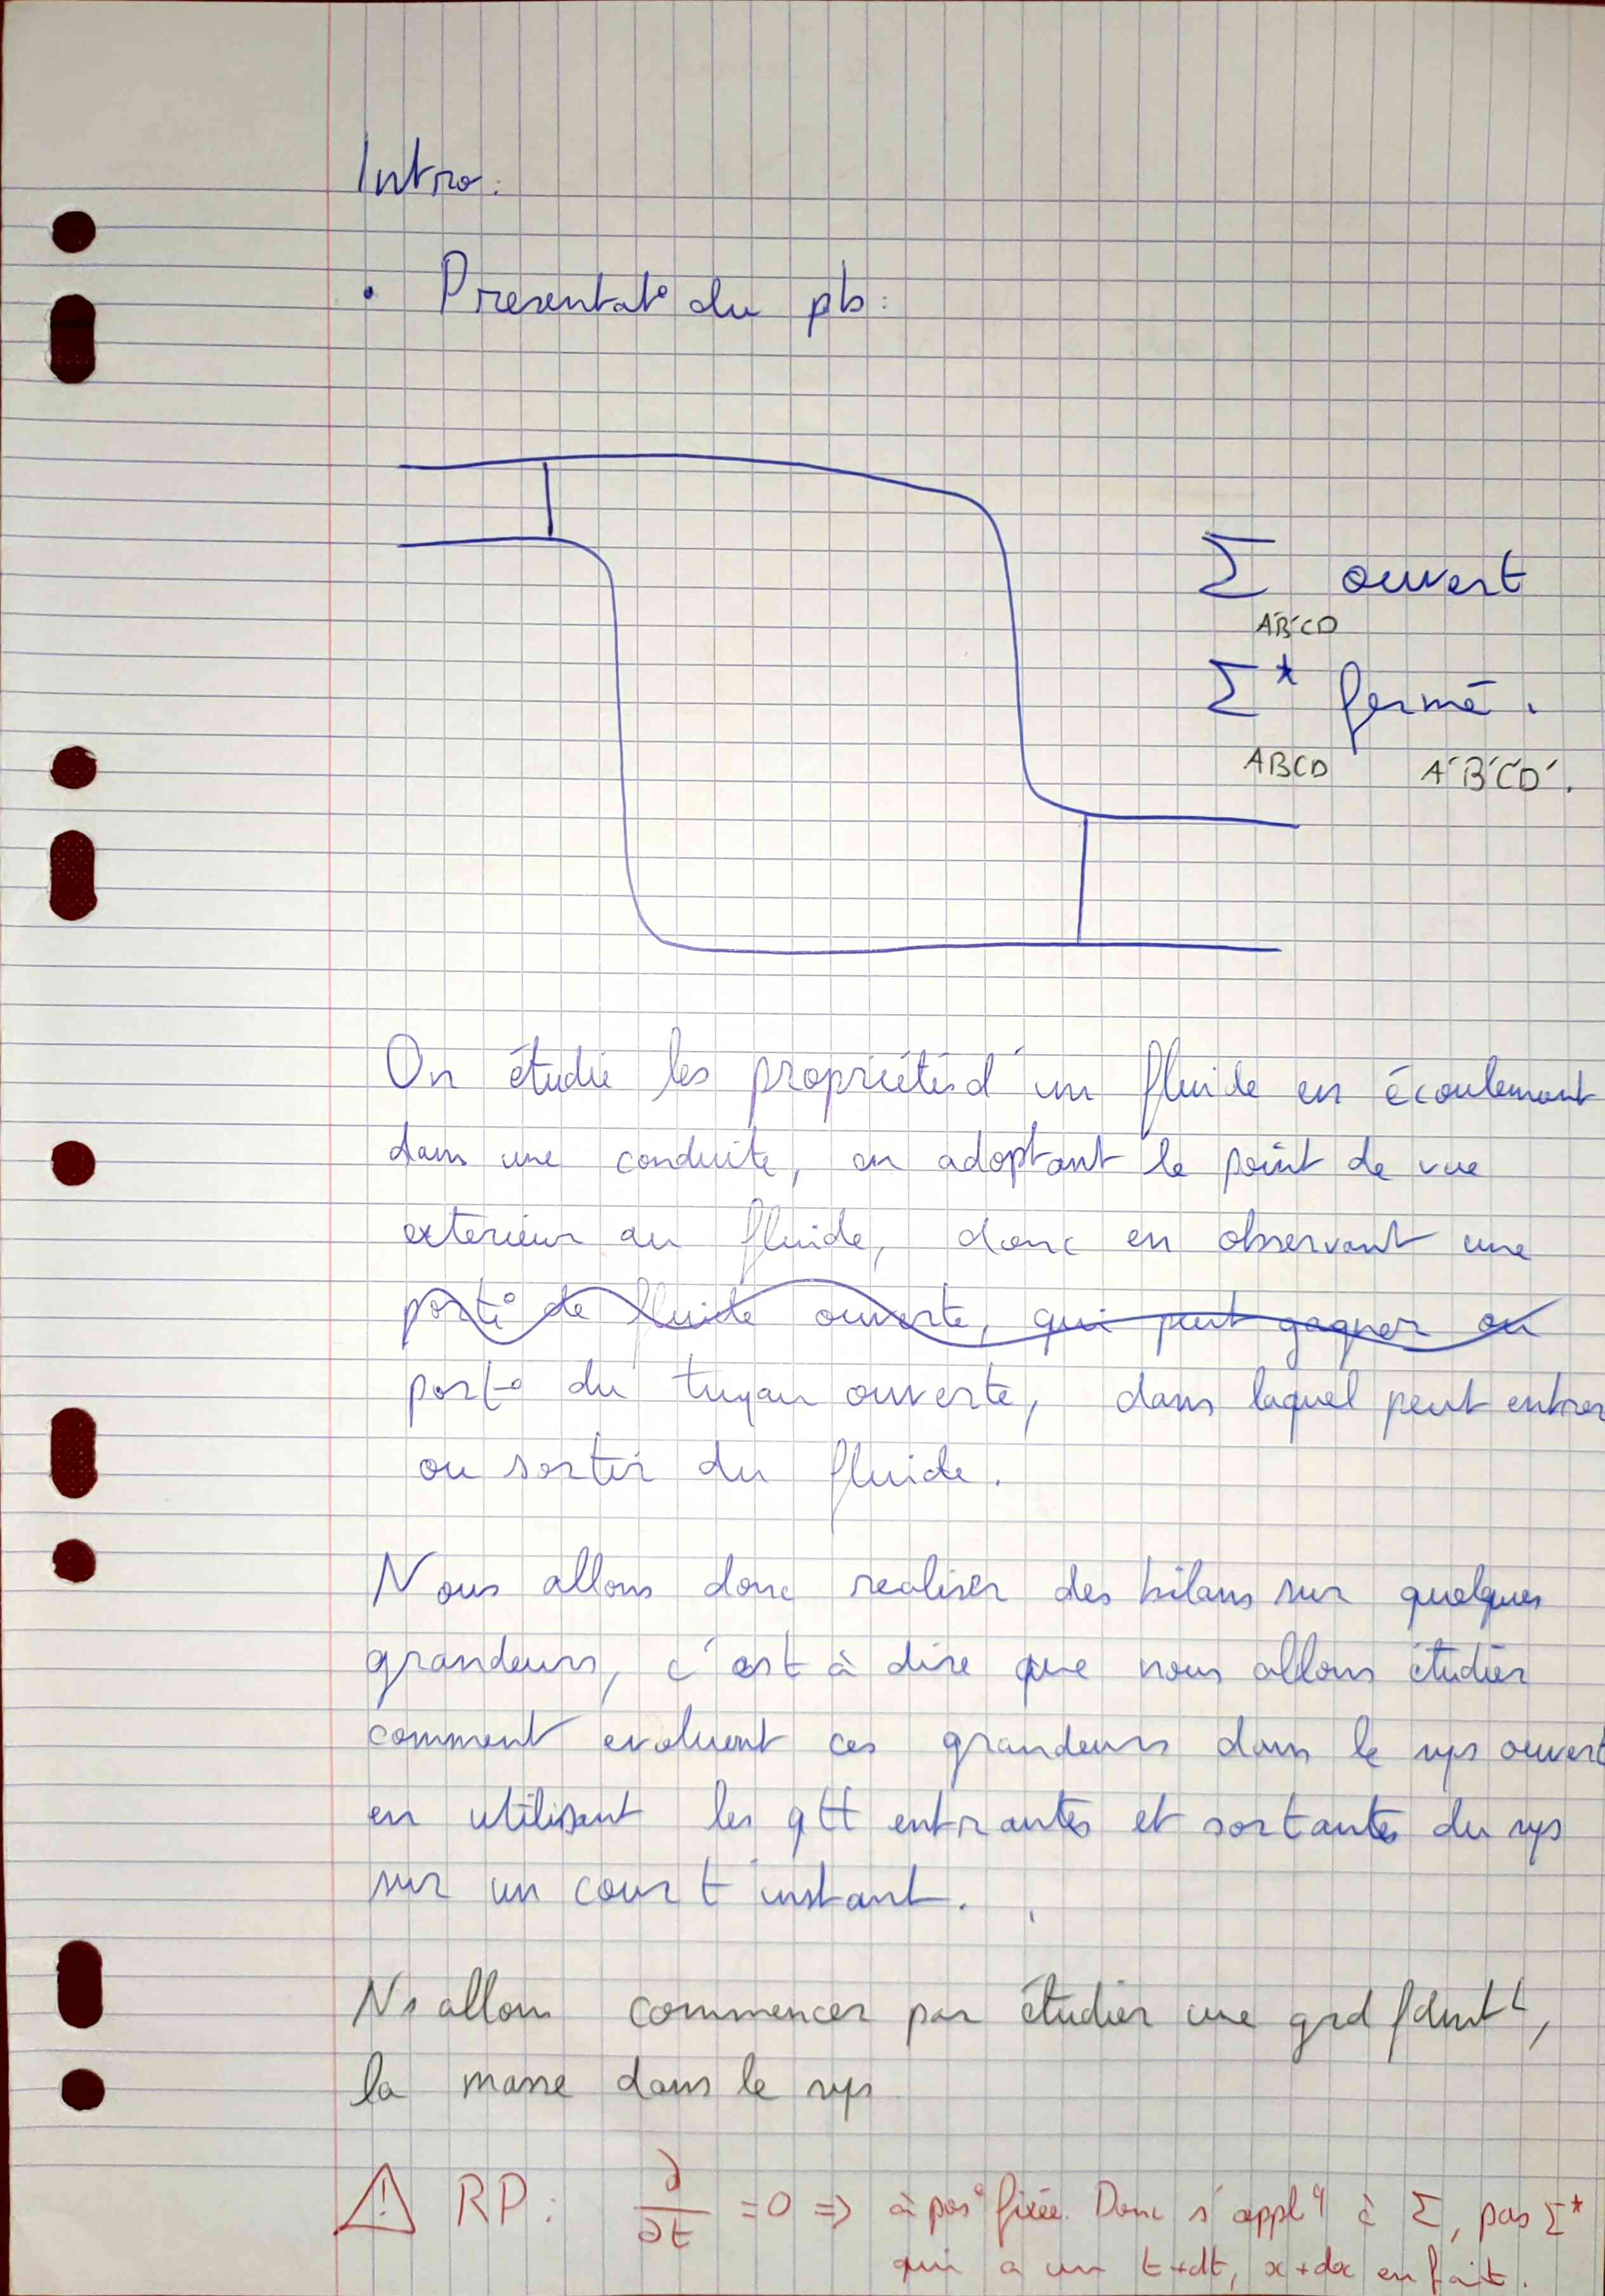 Intro:
• Presentat° du pb:
Σ ouvert
A'B'CD
Σ* fermé.
ABCD A'B'C'D'.
On étudie les propriétés d'un fluide en écoulement
dans une conduite, en adoptant le point de vue
exterieur au fluide, donc en observant une
porti° de fluide ouverte, qui peut gagner ou
port° du tuyau ouverte, dans laquel peut entrer
ou sortir du fluide.
Nous allons donc realiser des bilans sur quelques
grandeurs, c'est à dire que nous allons étudier
comment evoluent ces grandeurs dans le sys ouvert
en utilisant les qtt entrantes et sortantes du sys
sur un court instant.
Ns allons commencer par étudier une grd fdmtL,
la masse dans le sys
⚠ RP: ∂/∂t = 0 => à pos° fixée. Donc s'appl q à Σ, pas Σ*
qui a un t+dt, x+dx en fait.